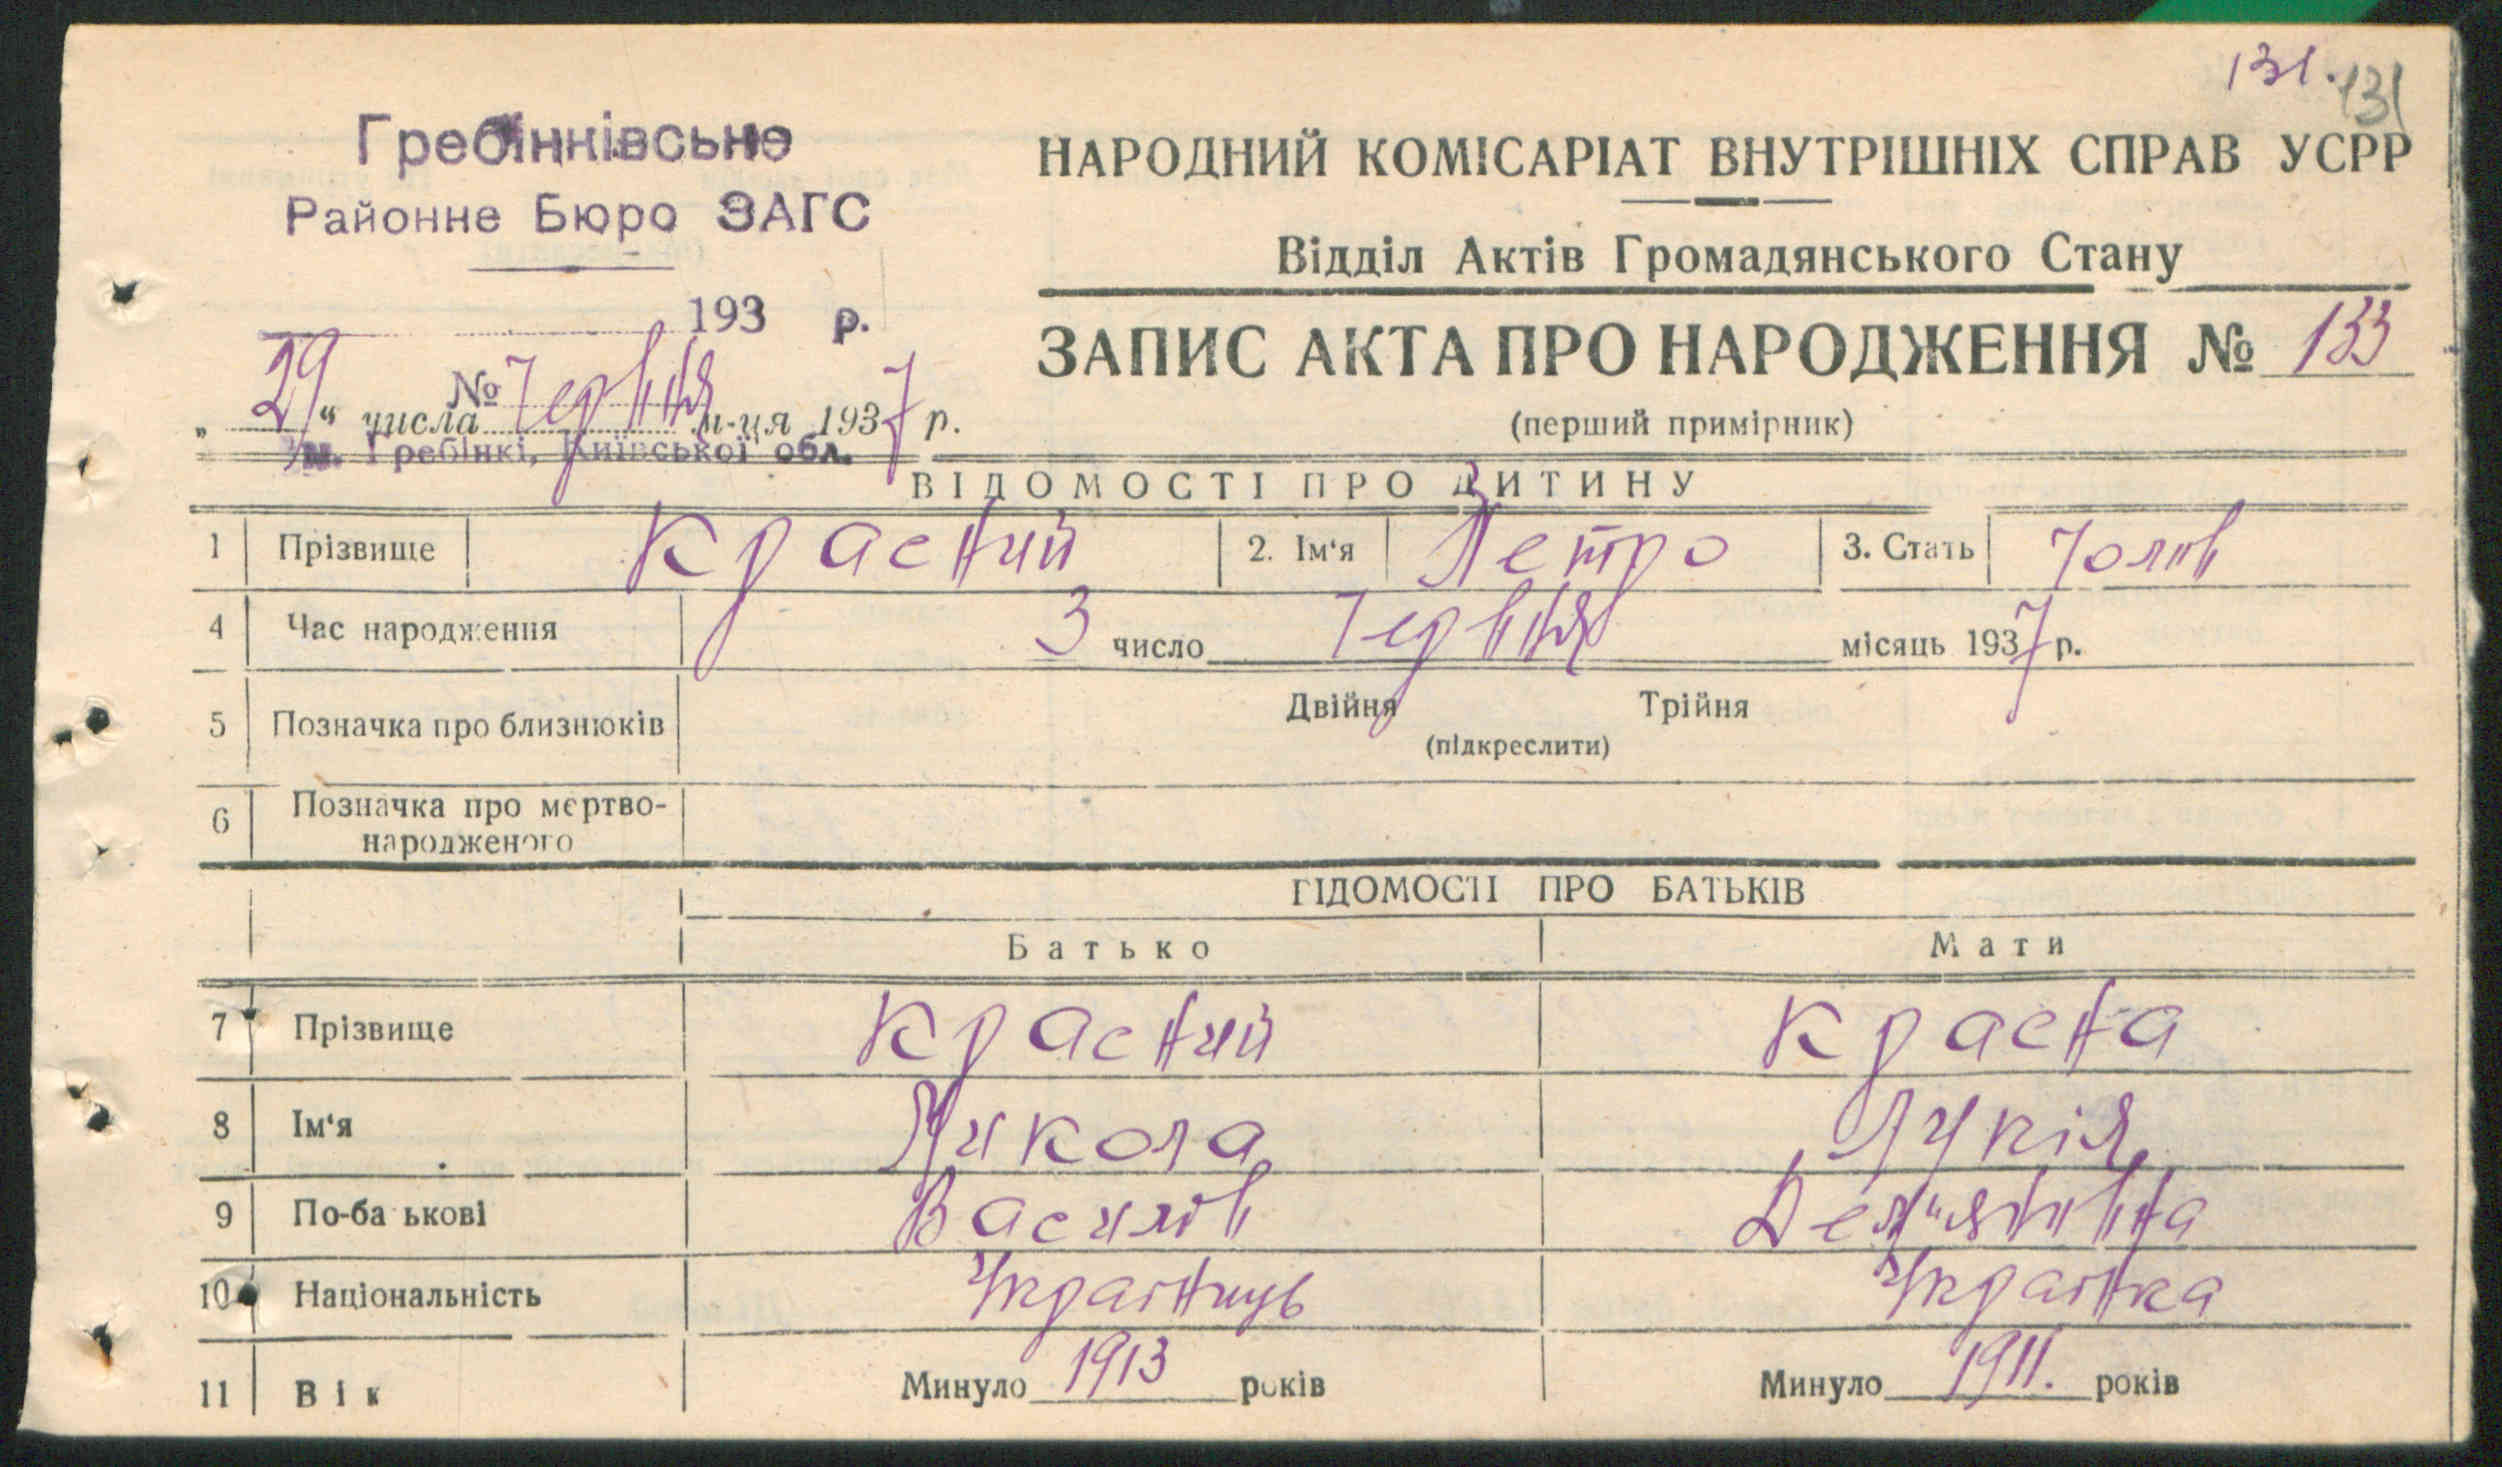 131. 131
Гребінківське
Районне Бюро ЗАГС
193 р.
№
„29“ числа Червня м-ця 1937 р.
м. Гребінкі, Київської обл.
НАРОДНИЙ КОМІСАРІАТ ВНУТРІШНІХ СПРАВ УСРР
Відділ Актів Громадянського Стану
ЗАПИС АКТА ПРО НАРОДЖЕННЯ № 133
(перший примірник)
ВІДОМОСТІ ПРО ДИТИНУ
1 Прізвище Красний 2. Ім‘я Петро 3. Стать Чолов
4 Час народження 3 число Червня місяць 1937 р.
5 Позначка про близнюків Двійня Трійня
(підкреслити)
6 Позначка про мертво-
народженого
ВІДОМОСТІ ПРО БАТЬКІВ
Батько Мати
7 Прізвище Красний Красна
8 Ім‘я Микола Лукія
9 По-ба ькові Василів Демянівна
10 Національність Українець Українка
11 Вік Минуло 1913 років Минуло 1911. років